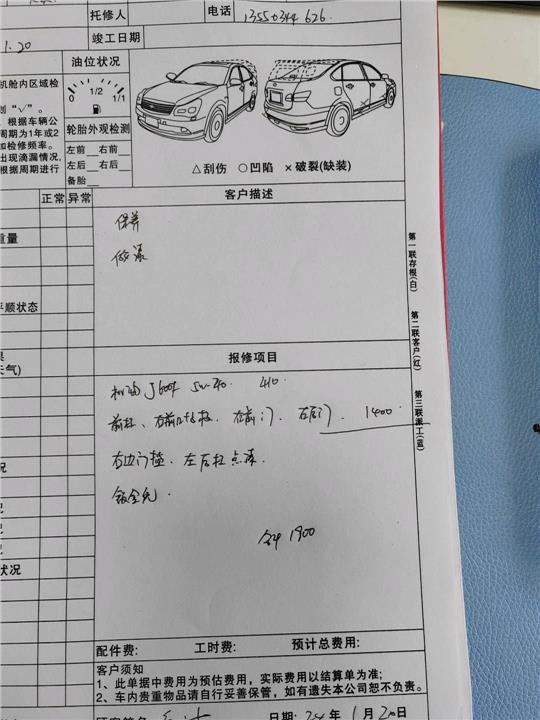 托修人
电话 1355034
1.20
竣工日期
机舱内区域检
油位状况
则“√”。
0 1/2 1/1
根据车辆公
周期为1年或2
加检修频率。
轮胎外观检测
出现滴漏情况,
左前__右前__
根据周期进行
左后__右后__
备胎__
△刮伤 ○凹陷 ×破裂(缺装)
正常 异常
客户描述
保养
做漆
重量
平顺状态
第一联存根(白)
第二联客户(红)
第三联派工(蓝)
报修项目
天气)
机油 5w-40. 410
前杠、右前门、右后门. 1400
右边门槛. 左后杠点漆.
钣金免.
1900
况
状况
配件费: 工时费: 预计总费用:
客户须知
1、此单据中费用为预估费用,实际费用以结算单为准;
2、车内贵重物品请自行妥善保管,如有遗失本公司恕不负责。
日期: 24年1月20日